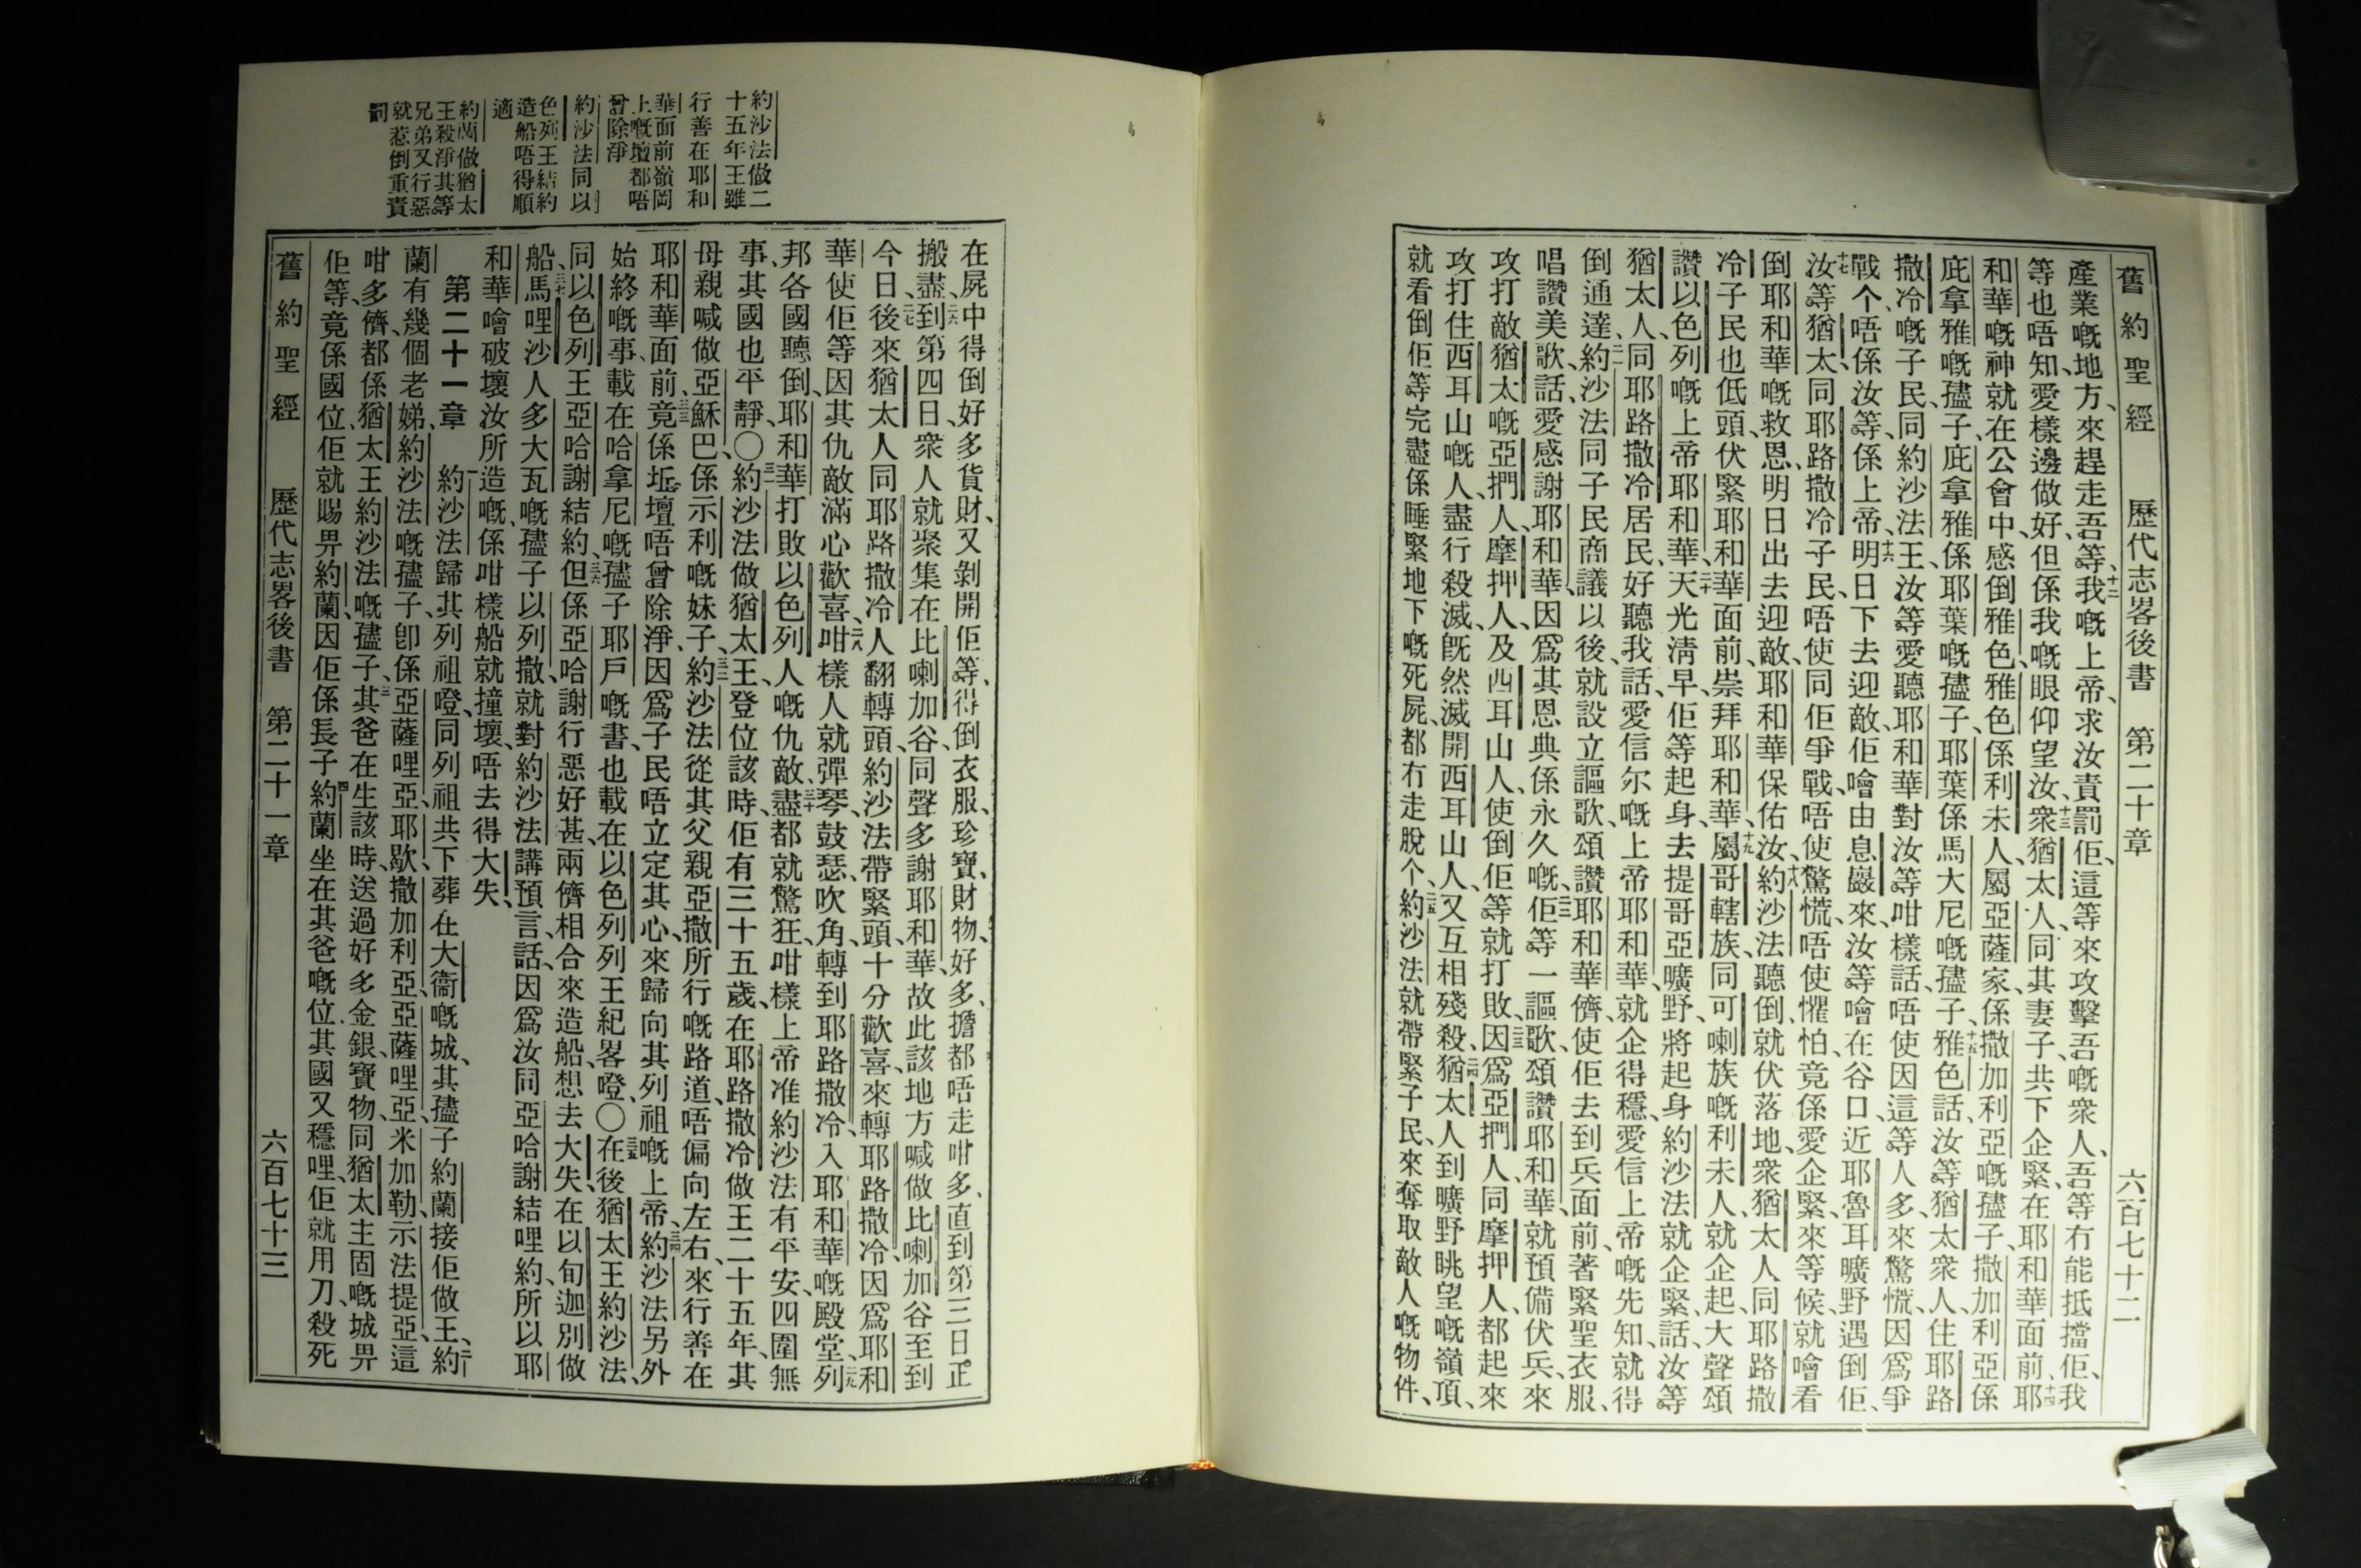 舊約聖經 歷代志畧後書 第二十章 六百七十二
產業嘅地方、來趕走吾等、十二我嘅上帝、求汝責罰佢、這等來攻擊吾嘅衆人、吾等冇能抵擋佢、我
等也唔知愛樣邊做好、但係我嘅眼仰望汝、十三衆猶太人、同其妻子、共下企緊、在耶和華面前、十四耶
和華嘅神就在公會中、感倒雅色、雅色係利未人、屬亞薩家、係撒加利亞嘅孻子、撒加利亞係
庇拿雅嘅孻子、庇拿雅係耶葉嘅孻子、耶葉係馬大尼嘅孻子、十五雅色話、汝等猶太衆人、住耶路
撒冷嘅子民、同約沙法王、汝等愛聽耶和華對汝等咁樣話、唔使因這等人多來驚慌、因爲爭
戰个、唔係汝等、係上帝、十六明日下去迎敵、佢噲由息巖來、汝等噲在谷口、近耶魯耳曠野遇倒佢、
十七汝等猶太同耶路撒冷子民、唔使同佢爭戰、唔使驚慌、唔使懼怕、竟係愛企緊、來等候、就噲看
倒耶和華嘅救恩、明日出去迎敵、耶和華保佑汝、十八約沙法聽倒就伏落地、衆猶太人、同耶路撒
冷子民也低頭、伏緊耶和華面前、崇拜耶和華、十九屬哥轄族、同可喇族嘅利未人、就企起、大聲頌
讚以色列嘅上帝耶和華、二十天光清早、佢等起身、去提哥亞曠野、將起身、約沙法就企緊、話、汝等
猶太人、同耶路撒冷居民、好聽我話、愛信尔嘅上帝耶和華、就企得穩、愛信上帝嘅先知、就得
倒通達、二一約沙法同子民商議以後、就設立謳歌、頌讚耶和華儕、使佢去到兵面前、著緊聖衣服、
唱讚美歌、話、愛感謝耶和華、因爲其恩典係永久嘅、二二佢等一謳歌、頌讚耶和華、就預備伏兵、來
攻打敵猶太嘅亞捫人、摩押人、及西耳山人、使倒佢等就打敗、二三因爲亞捫人、同摩押人、都起來
攻打住西耳山嘅人、盡行殺滅、旣然滅開西耳山人、又互相殘殺、二四猶太人到曠野眺望嘅嶺頂、
就看倒佢等完盡係睡緊地下嘅死屍、都冇走脫个、二五約沙法就帶緊子民、來奪取敵人嘅物件、
約沙法做二
十五年王雖
行善在耶和
華面前嶺岡
上嘅壇都唔
曾除淨
約沙法同以
色列王結約
造船唔得順
適
約蘭做猶太
王殺淨其等
兄弟又行惡
就惹倒重責
罰
在屍中得倒好多貨財、又剝開佢等、得倒衣服、珍寶、財物、好多、擔都唔走咁多、直到第三日正
搬盡、二六到第四日衆人就聚集在比喇加谷、同聲多謝耶和華、故此該地方喊做比喇加谷至到
今日、二七後來猶太人同耶路撒冷人翻轉頭、約沙法帶緊頭、十分歡喜、來轉耶路撒冷、因爲耶和
華使佢等因其仇敵滿心歡喜、二八咁樣人就彈琴、鼓瑟、吹角、轉到耶路撒冷、入耶和華嘅殿堂、二九列
邦各國聽倒、耶和華打敗以色列人嘅仇敵、三十盡都就驚狂、咁樣上帝准約沙法有平安、四圍無
事、其國也平靜、〇三一約沙法做猶太王、登位該時、佢有三十五歲、在耶路撒冷做王二十五年、其
母親喊做亞穌巴、係示利嘅妹子、三二約沙法從其父親亞撒所行嘅路道、唔偏向左右、來行善在
耶和華面前、三三竟係坵壇唔曾除淨、因爲子民唔立定其心、來歸向其列祖嘅上帝、三四約沙法另外
始終嘅事、載在哈拿尼嘅孻子耶戶嘅書、也載在以色列列王紀畧噔、〇三五在後猶太王約沙法、
同以色列王亞哈謝結約、三六但係亞哈謝行惡好甚、兩儕相合來造船、想去大失、在以旬迦別做
船、三七馬哩沙人多大瓦嘅孻子以列撒、就對約沙法講預言、話、因爲汝同亞哈謝結哩約、所以耶
和華噲破壞汝所造嘅、係咁樣船就撞壞、唔去得大失、
第二十一章 一約沙法歸其列祖噔、同列祖共下葬在大衞嘅城、其孻子約蘭接佢做王、二約
蘭有幾個老娣、約沙法嘅孻子、卽係亞薩哩亞、耶歇、撒加利亞、亞薩哩亞、米加勒、示法提亞、這
咁多儕、都係猶太王約沙法嘅孻子、三其爸在生該時、送過好多金銀、寶物、同猶太主固嘅城畀
佢等、竟係國位、佢就賜畀約蘭、因佢係長子、四約蘭坐在其爸爸嘅位、其國又穩哩、佢就用刀、殺死
舊約聖經 歷代志畧後書 第二十一章 六百七十三